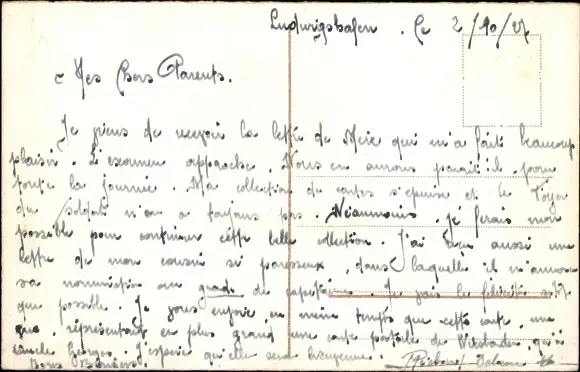 Ludwigshafen. Le 2/10/27
Mes Bons Parents.
Je viens de recevoir la lettre de Mère qui m'a fait beaucoup
plaisir. L'examen approche. Nous en aurons parait-il, pour
toute la journée. Ma collection de cartes s'épuise et le Foyer
du Soldat n'en a toujours pas. Néanmoins, je ferais mon
possible pour continuer cette belle collection. J'ai reçu aussi une
lettre de mon cousin si paresseux, dans laquelle il m'annonce
sa nomination au grade de capitaine. Je vais le féliciter
que possible. Je vous envoie en même temps que cette carte, une
représentant en plus grand une carte postale de Wiesbaden, qui
Georges. J'espère qu'elle sera bienvenue.
Bons Baisers.